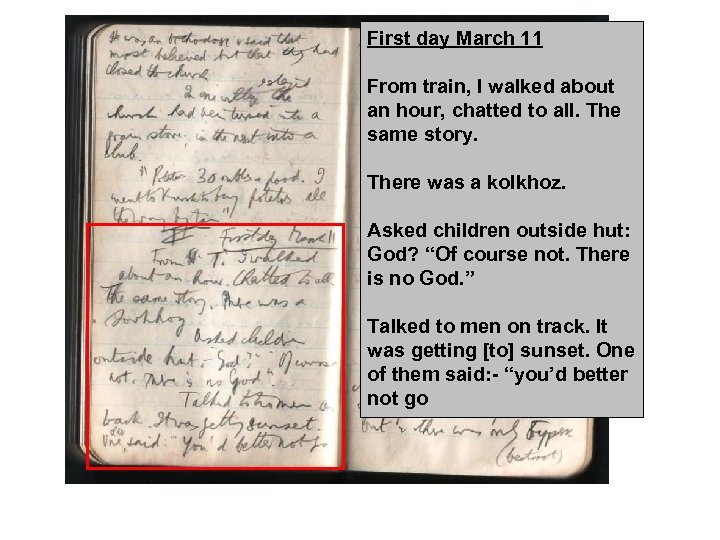 He was an orthodox & said that
most believed but that they had
closed the church
In one village the
church had been turned into a
grain store, in the next into a
club.
30 roubles a pood. I
went to Kursk to buy potatoes all
the way
First day March 11
From H. T. I walked
about an hour. Chatted to all.
The same story. There was a
Kolkhoz
Asked children
outside hut:- God? "Of course
not. There is no God".
Talked to men on
track. It was getting sunset.
One said:- "You'd better not go
but & there was only
(beetroot)
First day March 11
From train, I walked about
an hour, chatted to all. The
same story.
There was a kolkhoz.
Asked children outside hut:
God? “Of course not. There
is no God.”
Talked to men on track. It
was getting [to] sunset. One
of them said: - “you’d better
not go